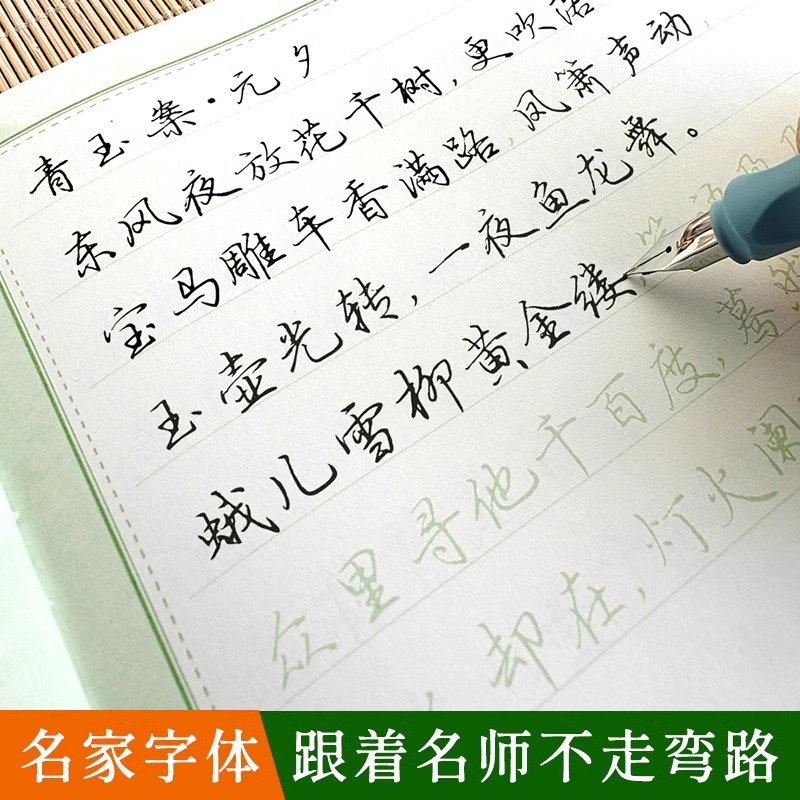 青玉案·元夕
东风夜放花千树，更吹落
宝马雕车香满路，凤箫声动，
玉壶光转，一夜鱼龙舞。
蛾儿雪柳黄金缕
众里寻他千百度，蓦
却在，灯火阑
名家字体 跟着名师不走弯路